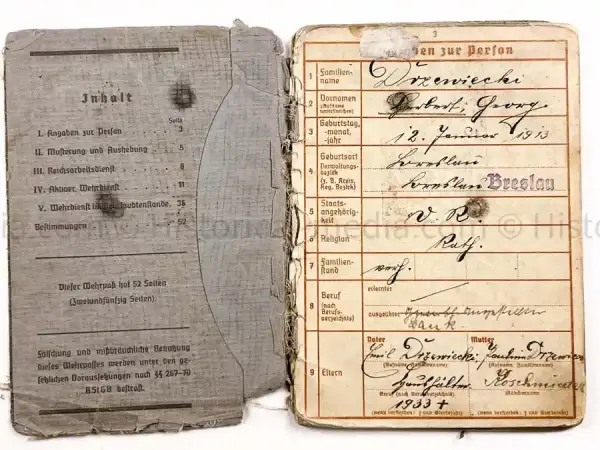 Inhalt
Seite
I. Angaben zur Person 3
II. Musterung und Aushebung 5
III. Reichsarbeitsdienst 8
IV. Aktiver Wehrdienst 11
V. Wehrdienst im Beurlaubtenstande. 36
Bestimmungen 52
Dieser Wehrpaß hat 52 Seiten
(Zweiundfünfzig Seiten).
Fälschung und mißbräuchliche Benutzung
dieses Wehrpasses werden unter den ge-
setzlichen Voraussetzungen nach §§ 267-70
RStGB bestraft.
3
zur Person
1 Familien-
name
Drzewiecki
2 Vornamen
(Rufname
unterstreichen)
Herbert, Georg
3 Geburtstag,
-monat,
-jahr
12. Januar 1913
4 Geburtsort
Verwaltungs-
bezirk
(z. B. Kreis,
Reg. Bezirk)
Breslau
Breslau Breslau
5 Staats-
angehörig-
keit
D. R.
6 Religion
Kath.
7 Familien-
stand
verh.
8 Beruf
(nach
Berufs-
verzeichnis)
erlernter
ausgeübter
Angestellter
9 Eltern
Vater
Mutter
Emil Drzewiecki
Drzewiecki
(Rufname, Familienname)
(Rufname, Familienname)
Beruf (nach Berufsverzeichnis)
Mädchenname
1933 +
(wenn verstorben: † und Sterbejahr)
(wenn verstorben: † und Sterbejahr)